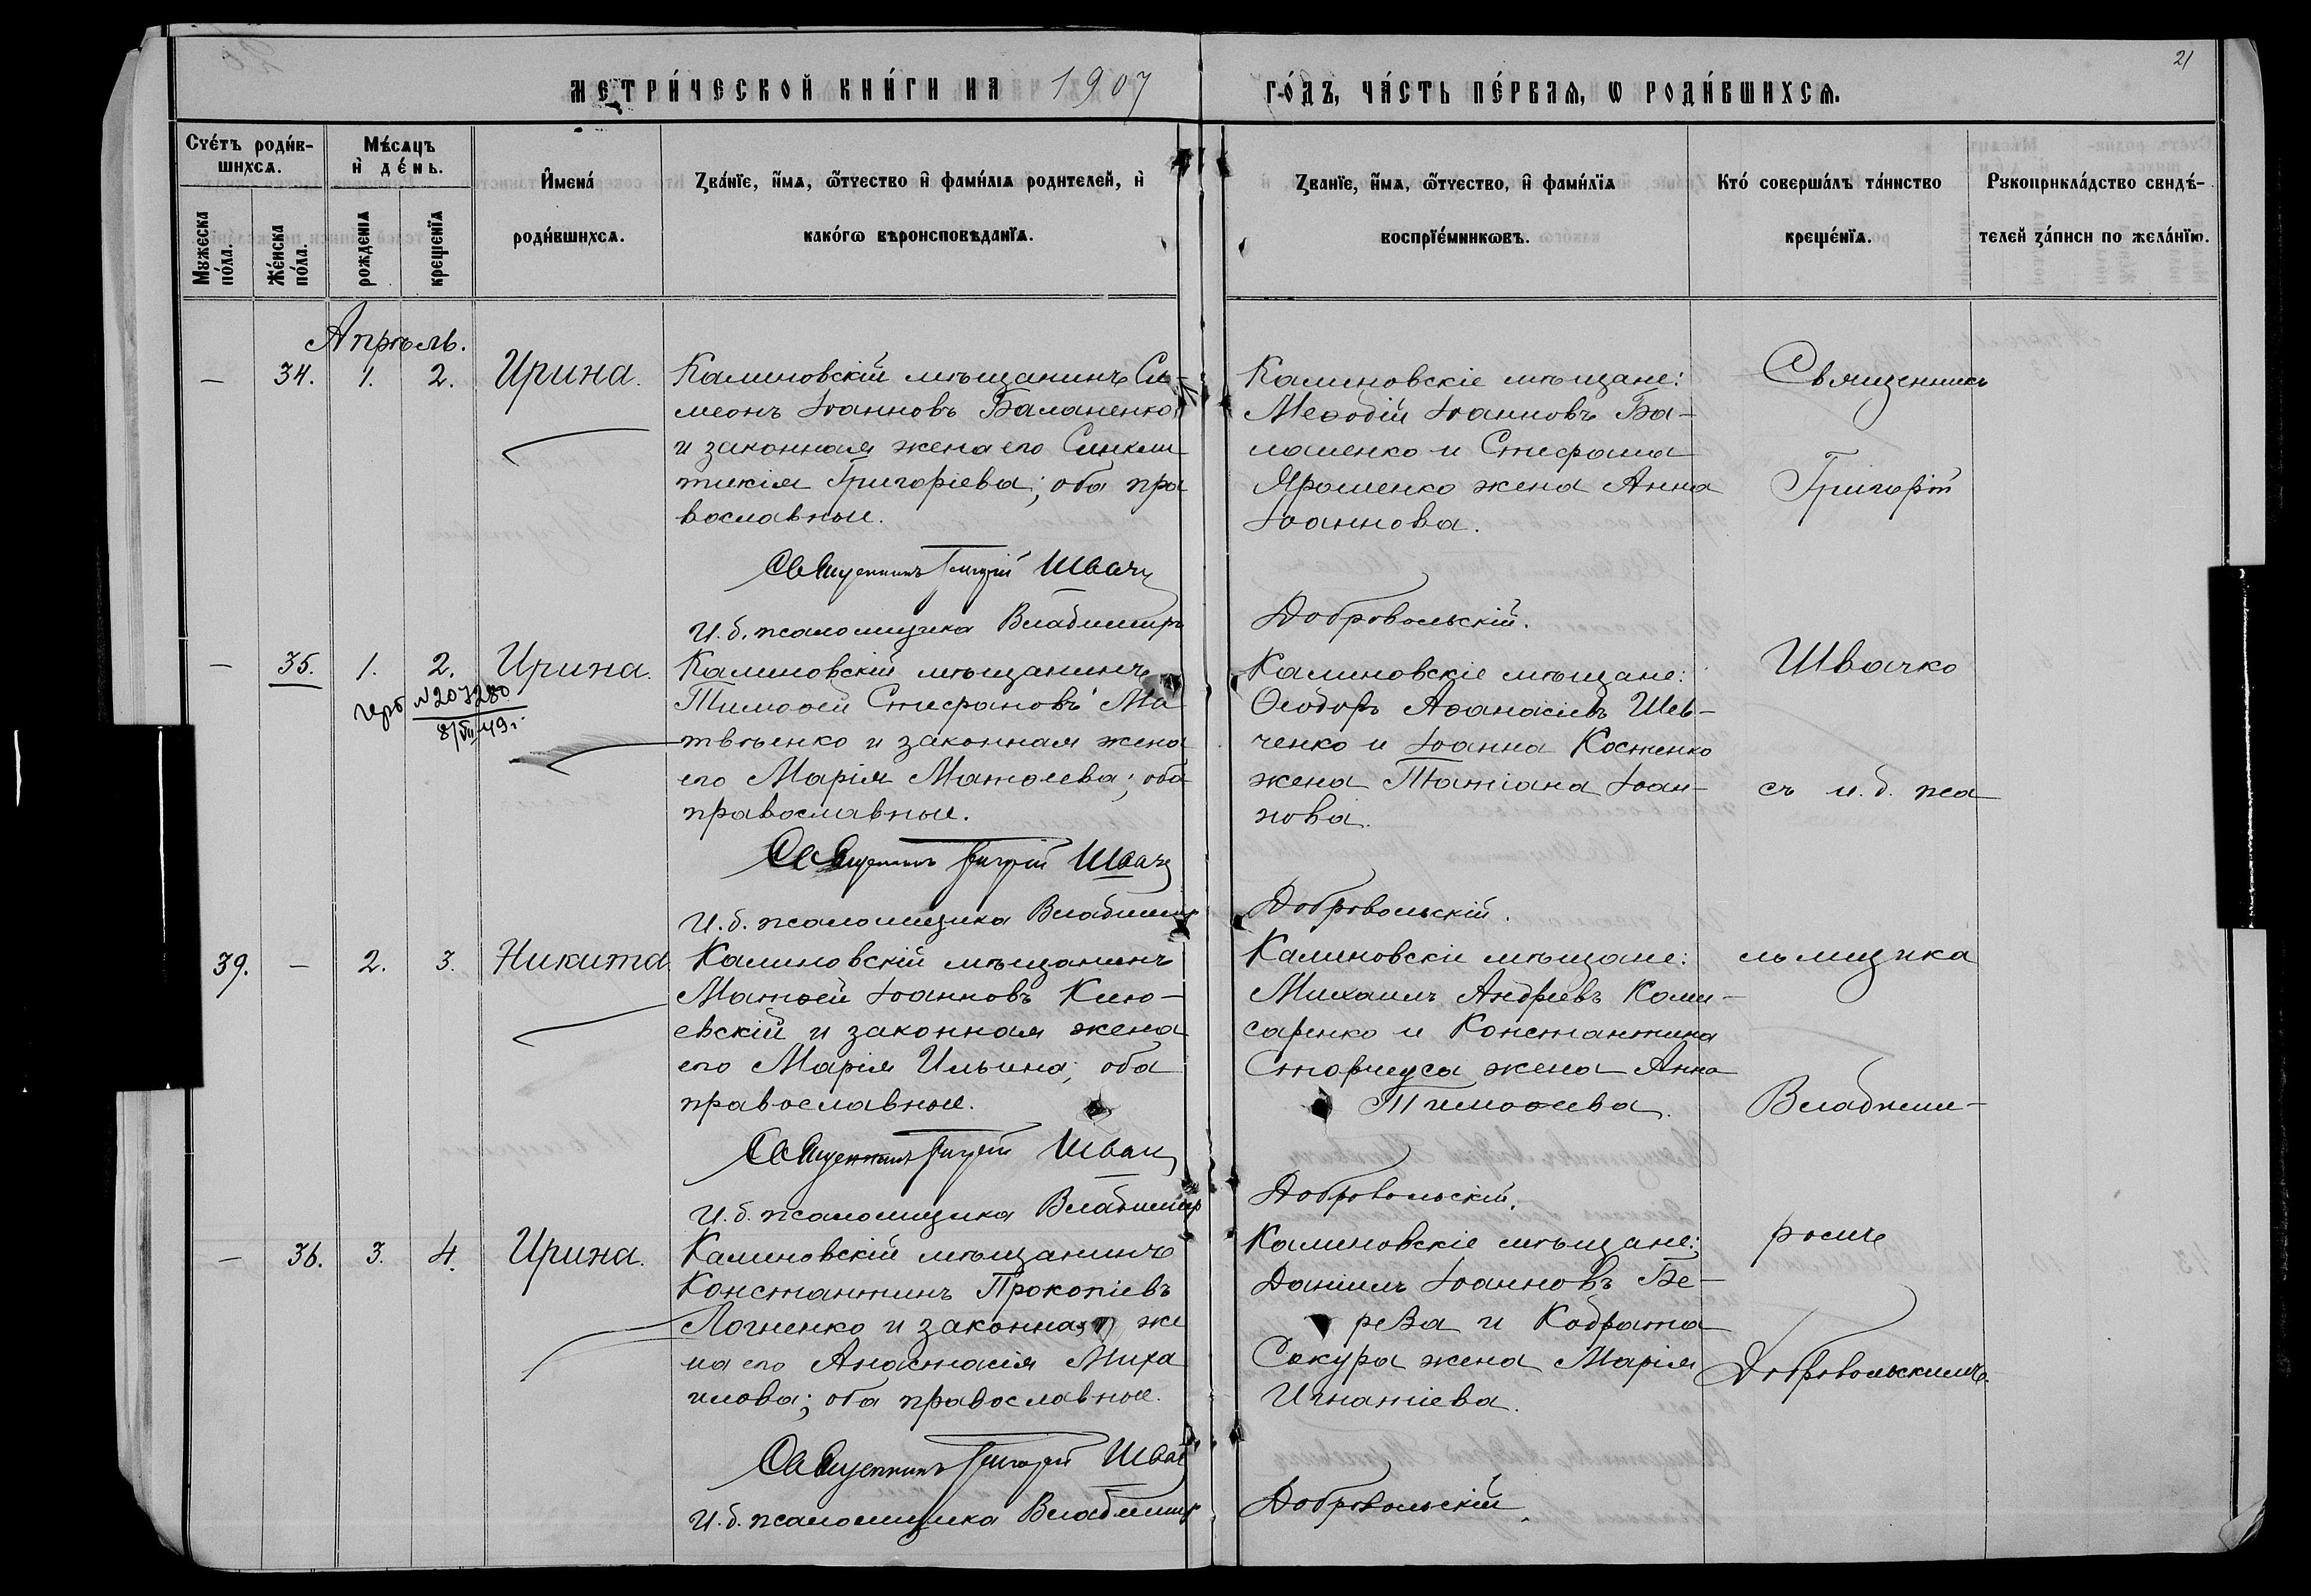 21
МЕТРИ́ЧЕСКОЙ КНИ́ГИ НА 1907 ГО́ДЪ, ЧА́СТЬ ПЕ́РВАѦ, Ѡ РОДИ́ВШИХСѦ.
Счётъ роди́в-
шихсѧ.
Мужеска по́ла.
Же́нска по́ла.
Мѣ́сѧцъ
и де́нь.
рождєнїѧ
крещенїѧ
Имена́
роди́вшихсѧ.
Зва́нїе, и́мѧ, ѻ҆́тчество и фами́лїѧ родителей, и
како́гѡ вѣроисповѣданїѧ.
Званїе, и́мѧ, ѻ҆́тчество, и фами́лїѧ
воспрїе́мникѡвъ.
Кто́ соверша́лъ та́инство
креще́нїѧ.
Рукоприкла́дство свидѣ́-
телей за́писи по жела́нїю.
Апрѣль.
— 34. 1. 2. Ирина.
Калиновскій мѣщанинъ Си-
меонъ Іоанновъ Баланенко
и законная жена его Синкли
тикія Григоріева; оба пра
вославные.
Священникъ Григорій Швачк
И. д. псаломщика Владимиръ
Калиновскіе мѣщане:
Меѳодій Іоанновъ Ба-
ланенко и Стефана
Ярошенко жена Анна
Іоаннова.
Добровольскій.
— 35. 1. 2. Ирина.
герб №207280
8/VII 49 г.
Калиновскій мѣщанинъ
Тимоѳей Стефановъ Ма
твѣенко и законная жена
его Марія Матѳеева; оба
православные.
Священникъ Григорій Швачк
И. д. псаломщика Владимир
Калиновскіе мѣщане:
Ѳеодоръ Аѳанасіевъ Шев-
ченко и Іоанна Костенко
жена Татіана Іоан-
нова.
Добровольскій.
39. — 2. 3. Никита.
Калиновскій мѣщанинъ
Матѳей Іоанновъ Клю-
евскій и законная жена
его Марія Ильина; оба
православные.
Священникъ Григорій Швач
И. д. псаломщика Владимир
Калиновскіе мѣщане:
Михаилъ Андреевъ Коми-
саренко и Константина
Сторчеуса жена Анна
Тимоѳеева.
Добровольскій.
— 36. 3. 4. Ирина.
Калиновскій мѣщанинъ
Константинъ Прокопіевъ
Логненко и законная же
на его Анастасія Миха
илова; оба православные.
Священникъ Григорій Швач
И. д. псаломщика Владимир
Калиновскіе мѣщане:
Даніилъ Іоанновъ Бе-
реза и Кодрата
Сакура жена Марія
Игнатіева.
Добровольскій.
Священникъ
Григорій
Швачко
съ и. д. пса
ломщика
Владими-
ромъ
Добровольскимъ.